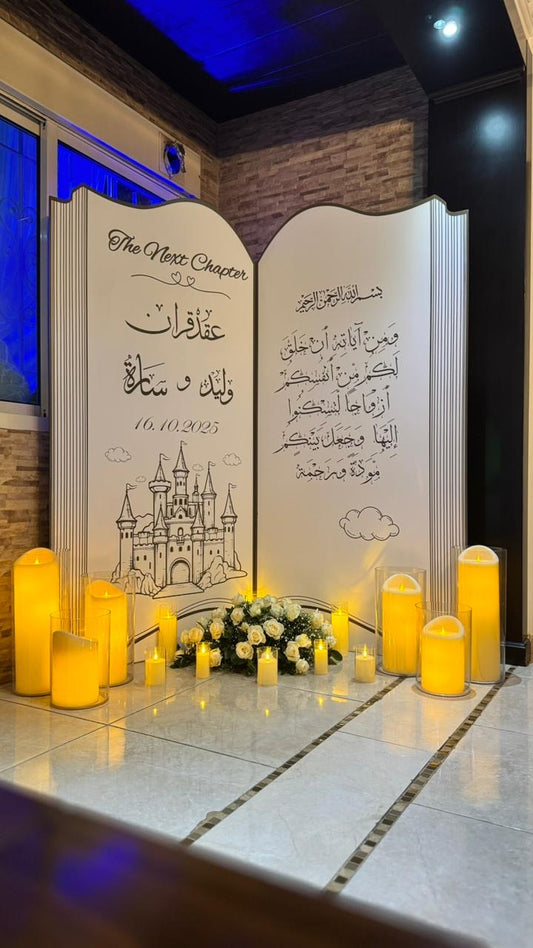 The Next Chapter
عقد قران
وليد و سارة
16.10.2025
بسم الله الرحمن الرحيم
وَمِنْ آيَاتِهِ أَنْ خَلَقَ
لَكُم مِّنْ أَنفُسِكُمْ
أَزْوَاجًا لِّتَسْكُنُوا
إِلَيْهَا وَجَعَلَ بَيْنَكُم
مَّوَدَّةً وَرَحْمَةً